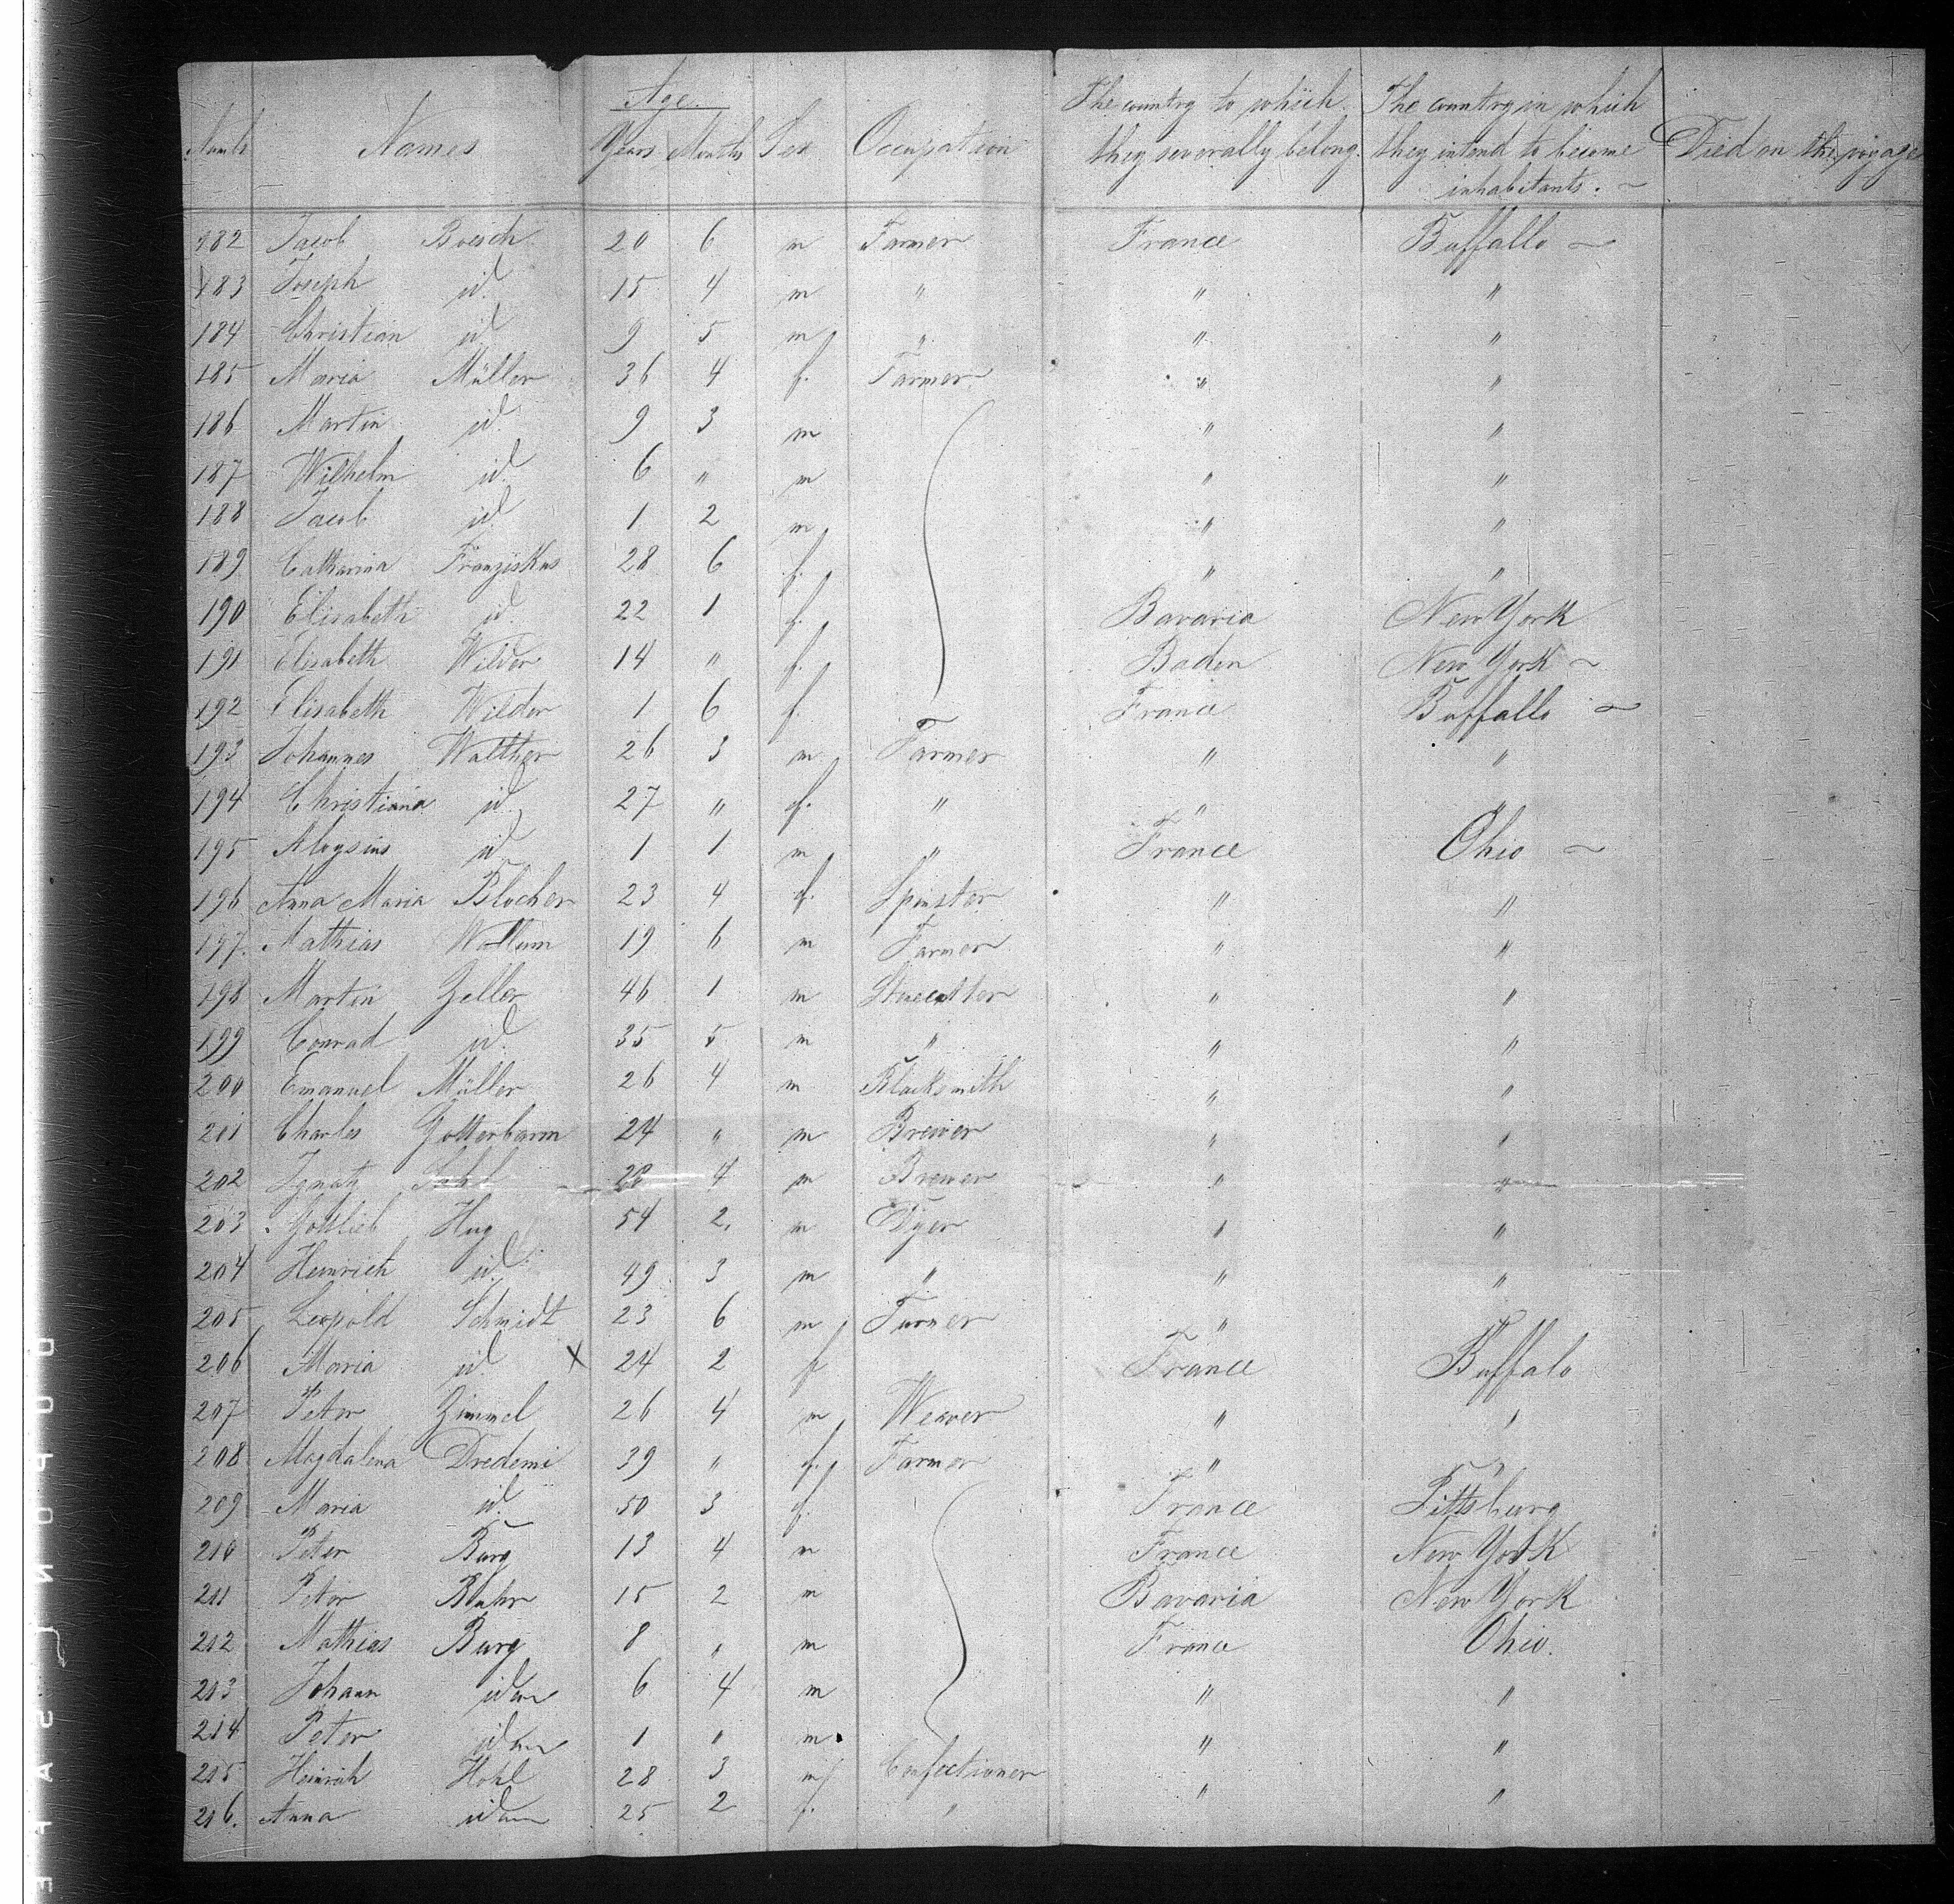 Numb Names Age. Years Months Sex Occupation The country to which they severally belong. The country in which they intend to become inhabitants. Died on the voyage
182 Jacob Boesch 20 6 m Farmer France Buffallo
183 Joseph id. 15 4 m " " "
184 Christian id. 9 5 m " " "
185 Maria Müller 36 4 f. Farmer " "
186 Martin id. 9 3 m " "
187 Wilhelm id. 6 " m " "
188 Jacob id. 1 2 m " "
189 Catharina Franziskus 28 6 f. " "
190 Elisabeth id. 22 1 f. Bavaria New York
191 Elisabeth Wilder 14 " f. Baden New York
192 Elisabeth Wilder 1 6 f. France Buffallo
193 Johannes Walther 26 3 m Farmer " "
194 Christiana id. 27 " f. " " "
195 Aloysius id 1 1 m " France Ohio
196 Anna Maria Blocher 23 4 f. Spinster " "
197. Mathias 19 6 m Farmer " "
198 Martin Zeller 46 1 m " "
199 Conrad id. 35 5 m " " "
200 Emanuel Müller 26 4 m Blacksmith " "
201 Charles Gotterbarm 24 " m Brewer " "
202 Ignatz 4 m Brewer " "
203 Gottlieb Hug 54 2. m Dyer " "
204 Heinrich id. 49 3 m " " "
205 Leopold Schmidt 23 6 m Turner "
206 Maria id. X 24 2 f France Buffalo
207 Peter Zimmel 26 4 m Weaver " "
208 Magdalena Dredemi 39 " f. Farmer " "
209 Maria id. 50 3 f. France Pittsburg
210 Peter Burg 13 4 m France New York
211 Peter 15 2 m Bavaria New York
212 Mathias Burg 8 " m France Ohio.
213 Johann idem 6 4 m " "
214 Peter idem 1 " m. " "
215 Heinrich Hohl 28 3 m Confectioner " "
216. Anna idem 25 2 f. "